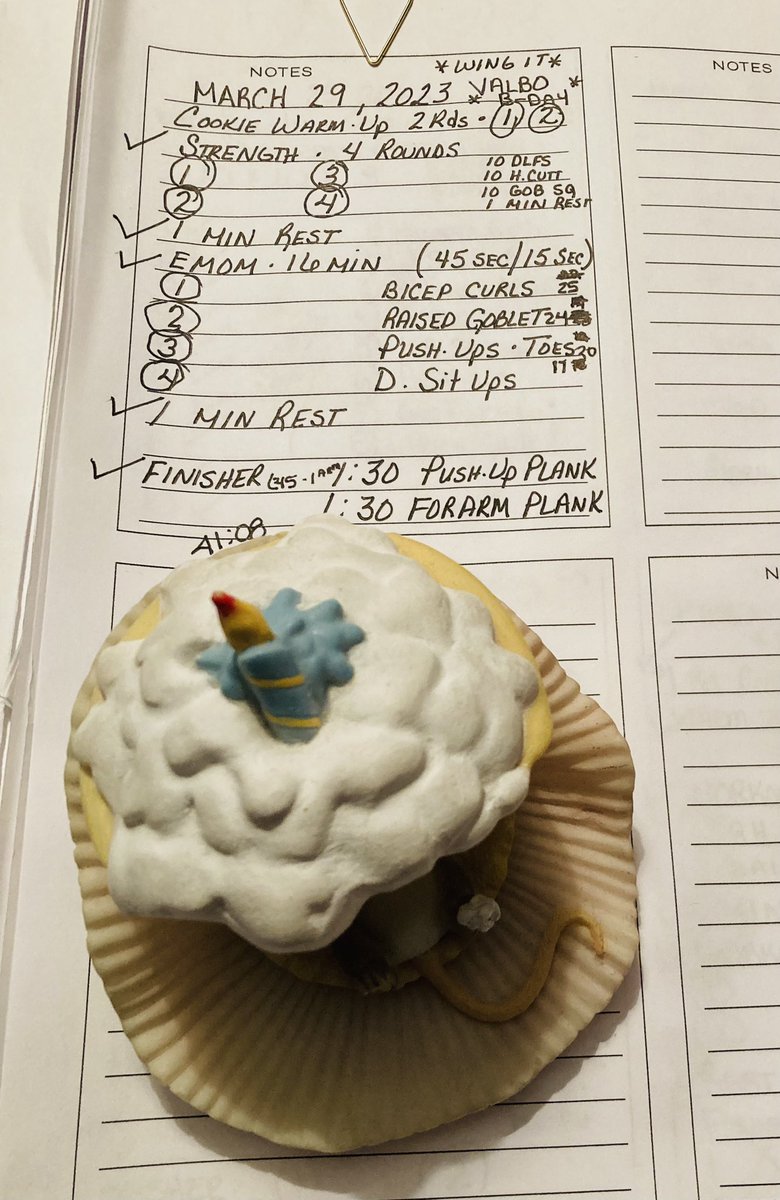 NOTES *WING IT*
MARCH 29, 2023 VALBO *
* B-DAY
COOKIE WARM-UP 2 RDS • ① ②
✓ STRENGTH • 4 ROUNDS
① ③ 10 DLFS
10 H.CUTT
② ④ 10 GOB SQ
1 MIN REST
✓ 1 MIN REST
✓ EMOM • 16 MIN (45 SEC/15 SEC)
① BICEP CURLS 25
② RAISED GOBLET 24
③ PUSH-UPS • TOES 20
④ D. SIT UPS 17
✓ 1 MIN REST
✓ FINISHER 1:30 PUSH-UP PLANK
1:30 FORARM PLANK
41:08
NOTES
N